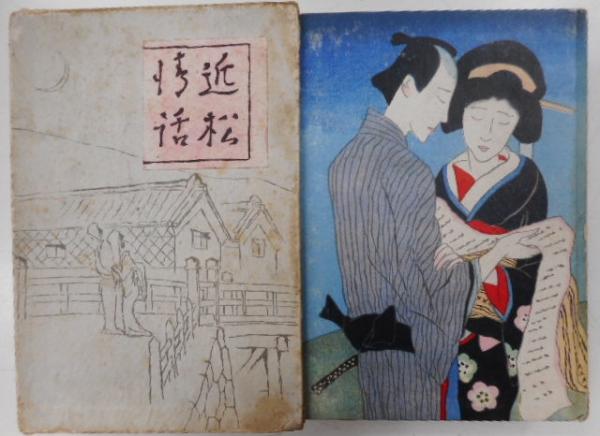 近松
情話